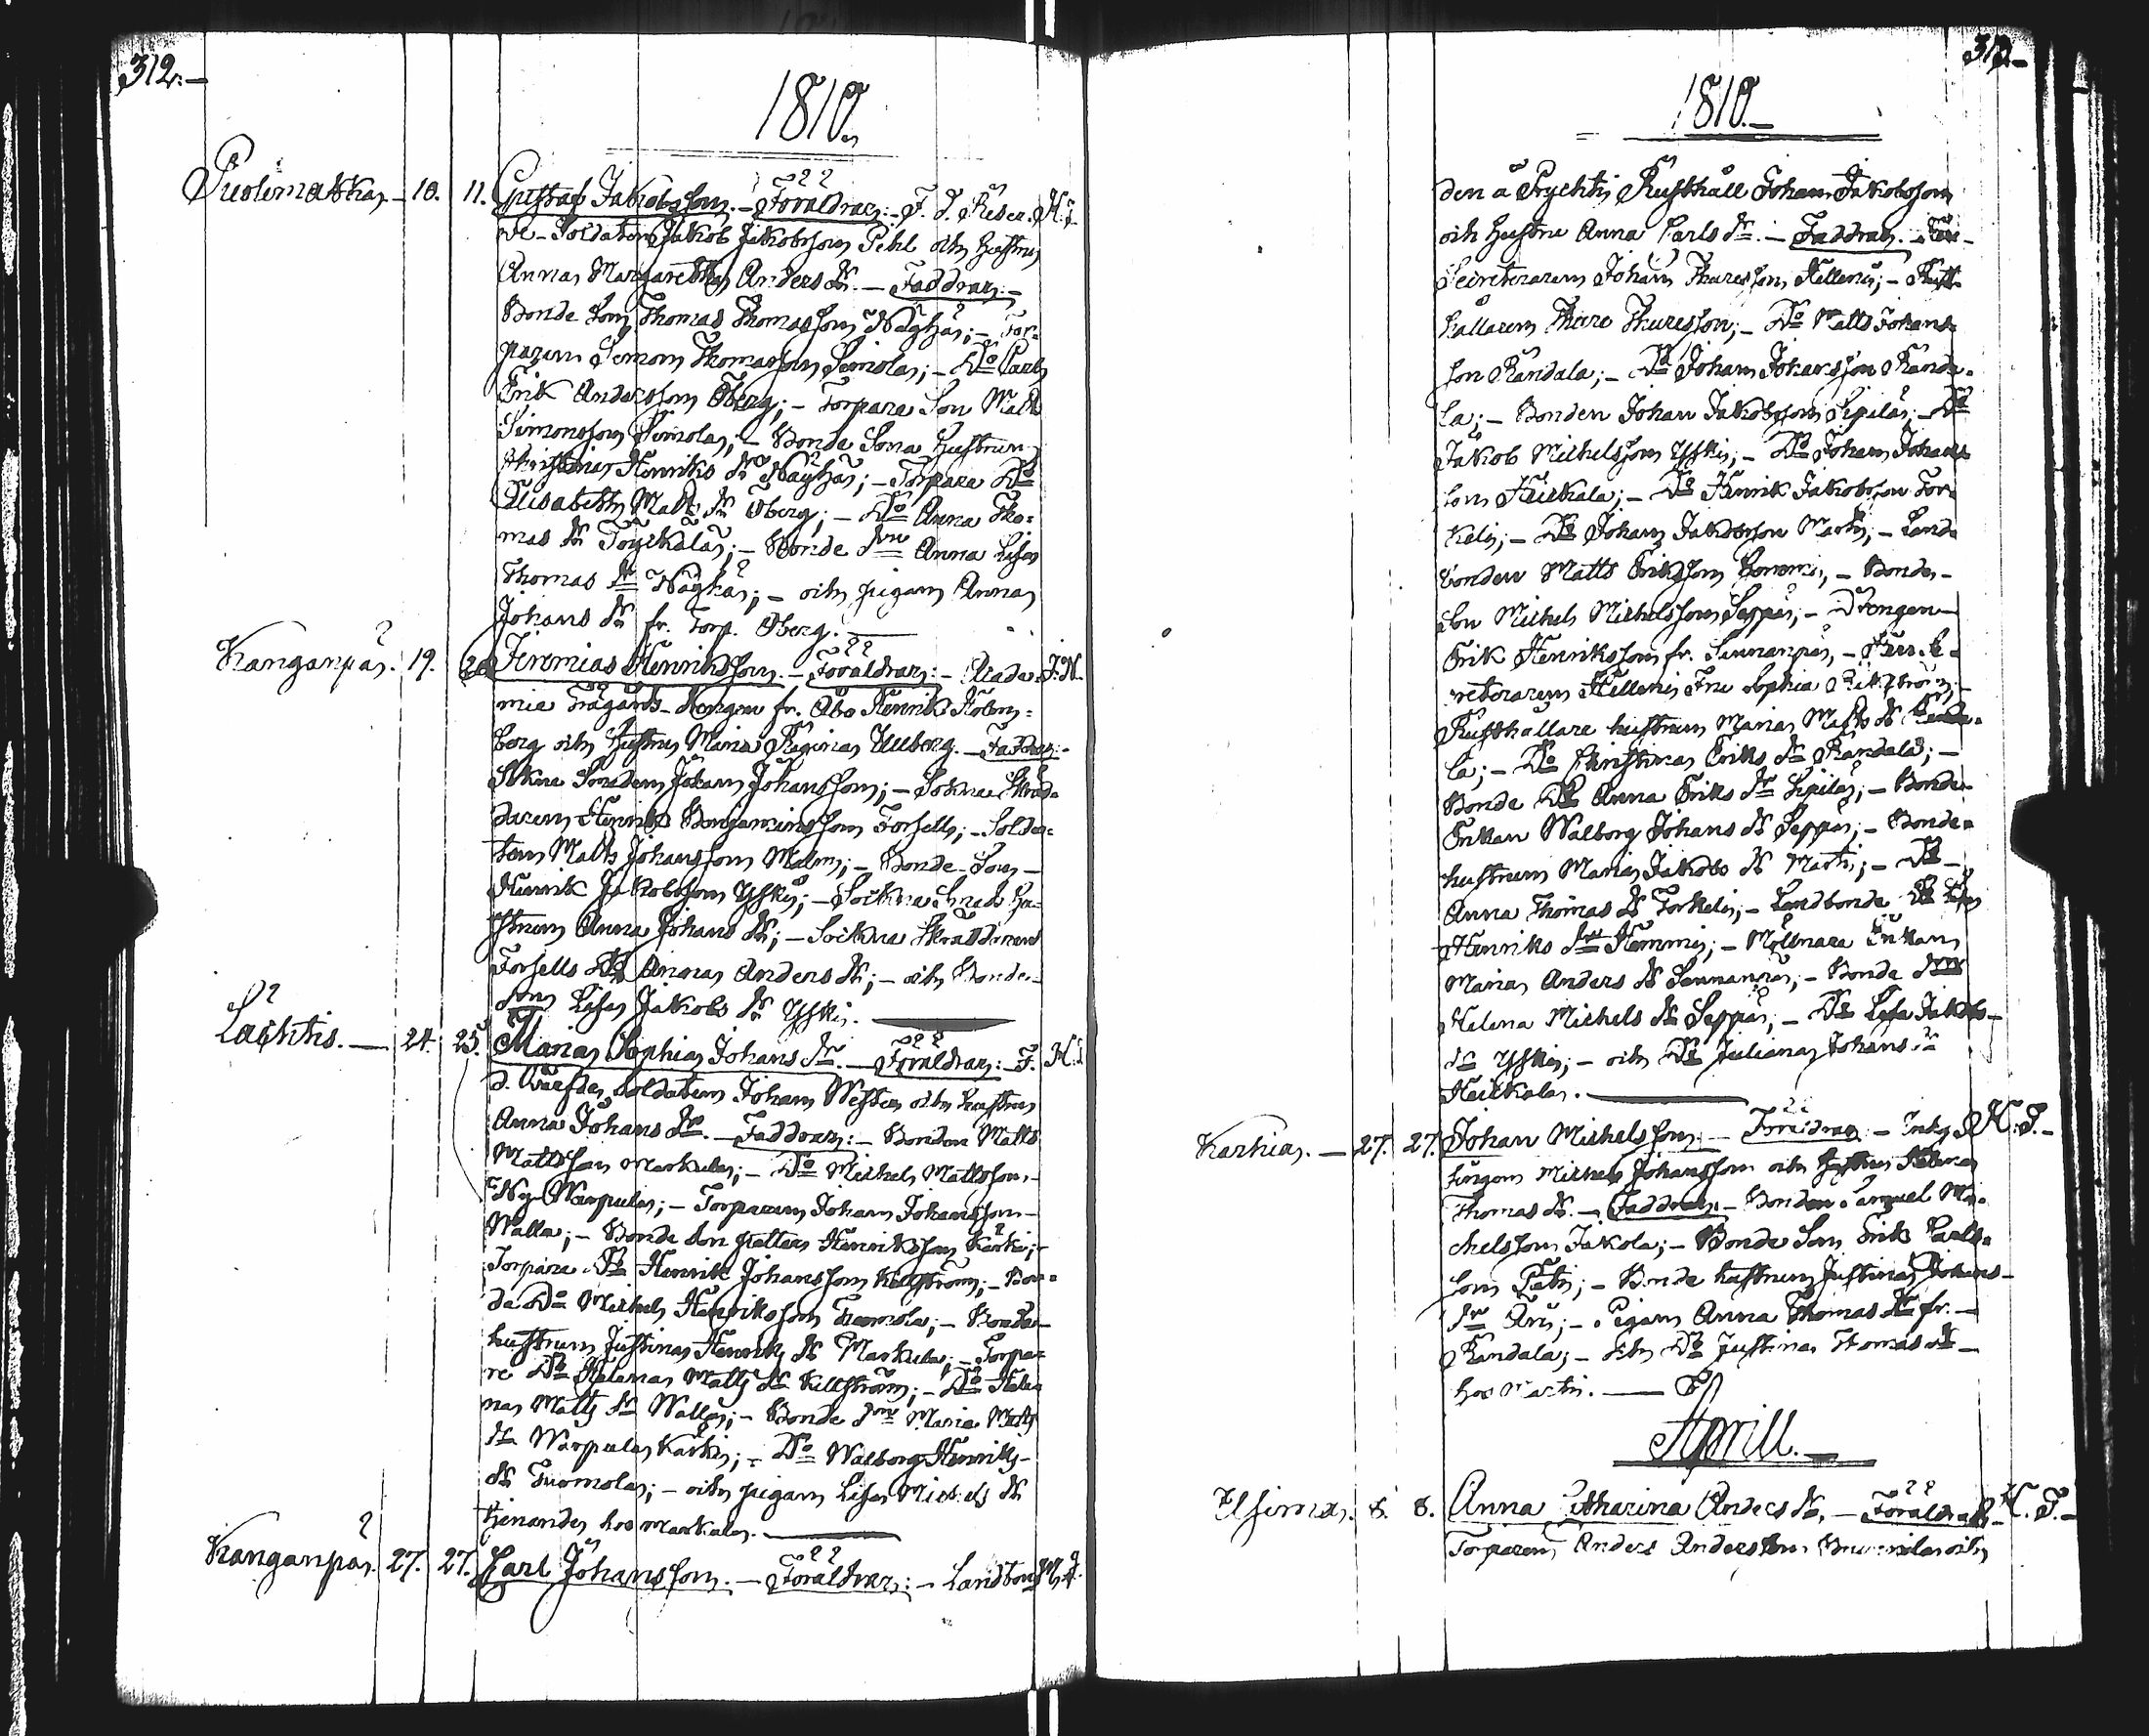 312.
1810.
Puolimatka. 10. 11. Gustaf Jakobsson. - Föräldrar: - F. d. Reser- H. S.
ve-Soldaten Jakob Jakobsson Pihl och Hustru
Anna Margaretha Anders dr. - Faddrar: -
Bonde Son Thomas Thomasson Näyhä; - Tor-
paren Simon Thomasson Simola; - Do Carl
Erik Andersson Öberg; - Torpare Son Matts
Simonsson Simola; - Bonde Sona hustrun
Christina Henriks dr Näyhä; - Torpare Do
Elisabeth Matts dr Öberg; - Do Anna Tho-
mas dr Töyckälä; - Bonde dr Anna Lisa
Thomas dr Näyhä; - och pigan Anna
Johans dr fr. Torp. Öberg.
Kanganpää. 19. 20. Jeremias Henriksson. - Föräldrar: - Acade- J. N.
mie Trägårds-drengen fr. Åbo Henrik Holm-
berg och Hustru Maria Regina Ullberg. - Faddrar: -
Sokne Smeden Johan Johansson; - Sokne Skräd-
daren Henrik Benjaminsson Forsell; - Solda-
ten Matts Johansson Malm; - Bonde-Son -
Henrik Jakobsson Yski; - Sokne Smeds Hu-
strun Anna Johans dr; - Sockne Skräddarens
Forsells Do Anna Anders dr; - och Bonde-
dotn Lisa Jakobs dr Yski.
Lächtis. 24. 25. Maria Sophia Johans dr. - Föräldrar: - F. H. S.
d. Värfda Soldaten Johan Wester och hustru
Anna Johans dr. - Faddrar: - Bonden Matts
Mattsson Markula; - Do Michel Mattsson
Ny-Warpula; - Torparen Johan Johansson
Walla; - Bonde Son Petter Henriksson Kärki; -
Torpare Do Henrik Johansson Kellström; - Bon-
de Do Michel Henriksson Tuomola; - Bonde-
hustrun Justina Henriks dr Markula; - Torpa-
re Do Helena Matts dr Kellström; - Do Hele-
na Matts dr Walla; - Bonde dr Maria Matts
dr Warpula Kärki; - Do Walborg Henriks
dr Tuomola; - och pigan Lisa Michels dr
tjenandes hos Markula.
Kanganpää. 27. 27. Carl Johansson. - Föräldrar: - Landbon-
1810.
den å Prychti Rusthåll Johan Jakobsson
och hustru Anna Carls dr. - Faddrar. -
Secreteraren Johan Thuresson Hellenius; - Rust-
hållaren Thure Thuresson; - Do Matts Johans-
son Randala; - Do Johan Johansson Randa-
la; - Bonden Johan Jakobsson Sipilä; - Do
Jakob Michelsson Yski; - Do Johan Johans
son Heikkala; - Do Henrik Jakobsson Tor-
keli; - Do Johan Jakobsson Martti; - Land-
bonden Matts Eriksson Hemmi; - Bonde-
Son Michel Michelsson Seppä; - Drengen
Erik Henriksson fr. Sunnanpää; - Herr Se-
creteraren Hellenii Fru Sophia
Rusthållare hustrun Maria Matts dr Randa-
la; - Do Christina Eriks dr Randala; -
Bonde Do Anna Eriks dr Sipilä; - Bonde-
Enkan Walborg Johans dr Seppä; - Bonde-
hustrun Maria Jakobs dr Martti; - Do -
Anna Thomas dr Torkeli; - Landbonde Do Lisa
Henriks dr Hemmi; - Möllnare Enkan
Maria Anders dr Sunnanpää; - Bonde dr
Helena Michels dr Seppä; - Do Lisa Jakobs
dr Yski; - och Do Juliana Johans dr
Heikkala.
Karhia. 27. 27. Johan Michelsson. - Föräldrar: - Inhy- H. S.
singen Michel Johansson och Hustru Helena
Thomas dr. - Faddrar: - Bonden Samuel Mi-
chelsson Jakola; - Bonde Son Erik Carls-
son ; - Bonde hustrun Justina Johans
dr ; - Pigan Anna Thomas dr fr. -
Randala; - och Do Justina Thomas dr -
hos Martti.
Aprill.
8. 8. Anna Catharina Anders dr. - Föräldrar: - H. S.
Torparen Anders Andersson och